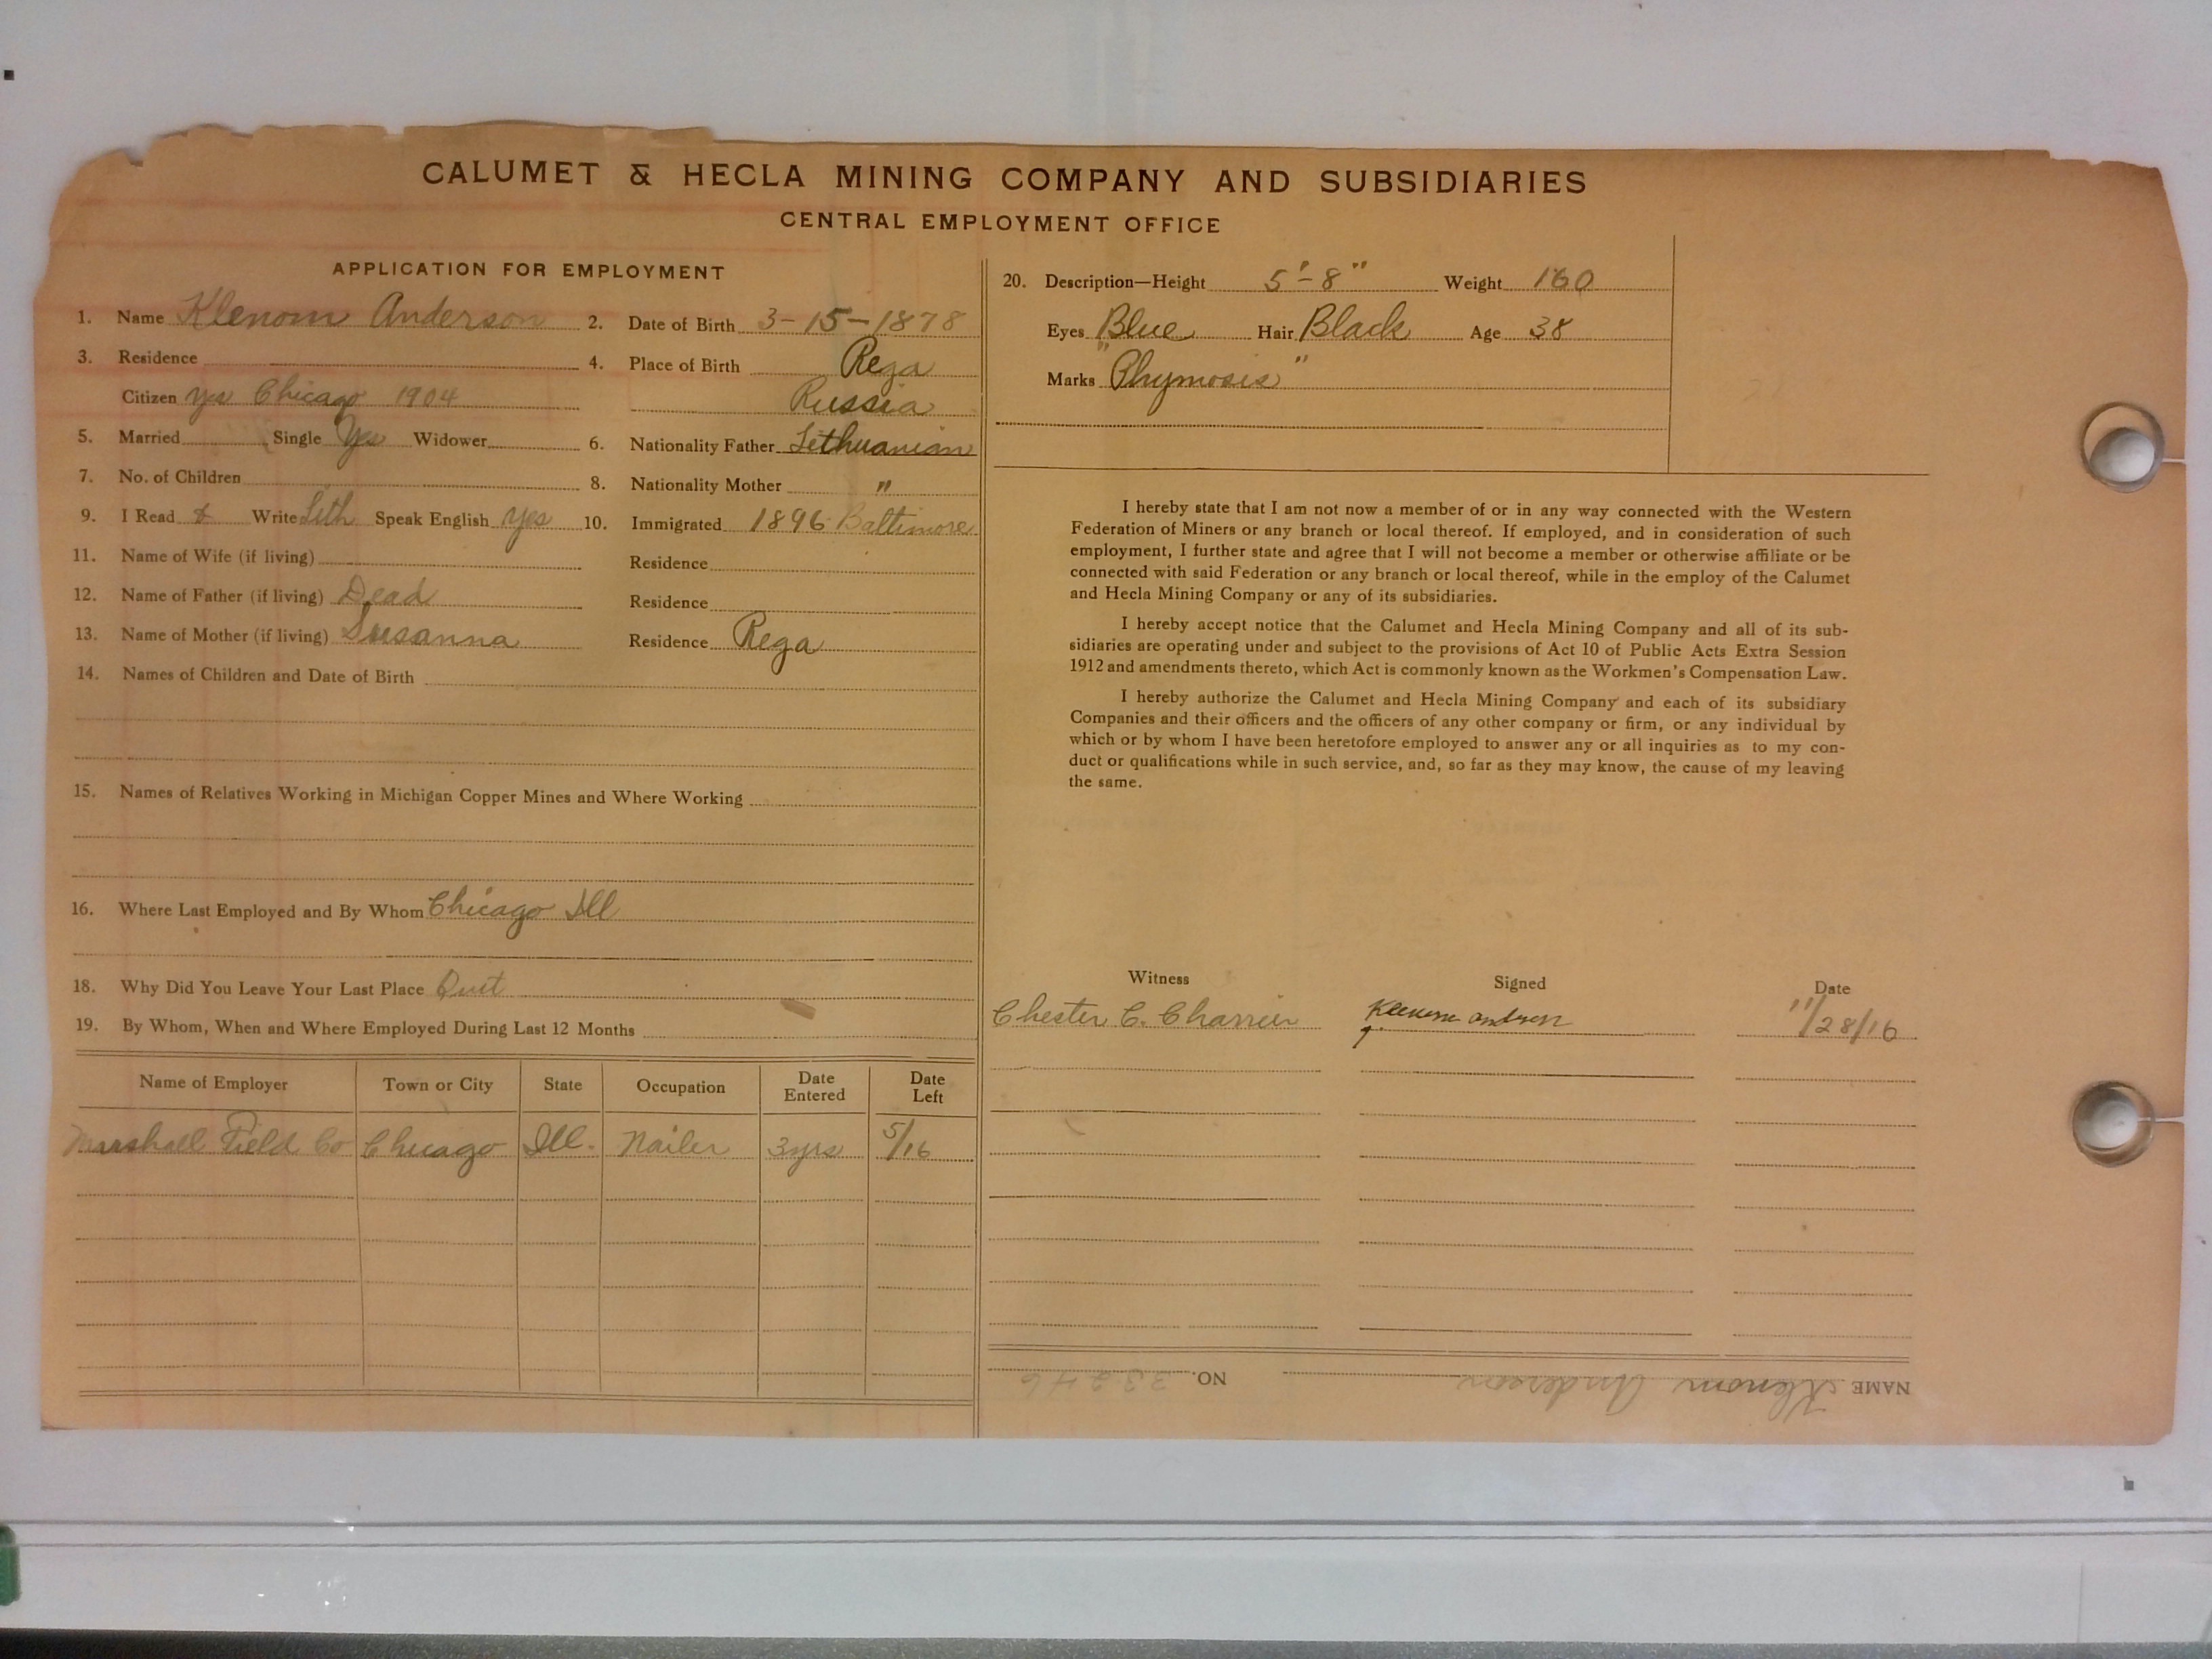 CALUMET & HECLA MINING COMPANY AND SUBSIDIARIES
CENTRAL EMPLOYMENT OFFICE
APPLICATION FOR EMPLOYMENT
1. Name Klenom Anderson 2. Date of Birth 3-15-1878
3. Residence 4. Place of Birth Rega
Citizen yes Chicago 1904 Russia
5. Married Single Yes Widower 6. Nationality Father Lithuanian
7. No. of Children 8. Nationality Mother "
9. I Read & Write Lith Speak English yes 10. Immigrated 1896 Baltimore
11. Name of Wife (if living) Residence
12. Name of Father (if living) Dead Residence
13. Name of Mother (if living) Susanna Residence Rega
14. Names of Children and Date of Birth
15. Names of Relatives Working in Michigan Copper Mines and Where Working
16. Where Last Employed and By Whom Chicago Ill
18. Why Did You Leave Your Last Place Quit
19. By Whom, When and Where Employed During Last 12 Months
Name of Employer Town or City State Occupation Date Entered Date Left
Marshall Field Co Chicago Ill. Nailer 3yrs 5/16
20. Description—Height 5'-8" Weight 160
Eyes Blue Hair Black Age 38
Marks "Phymosis"
I hereby state that I am not now a member of or in any way connected with the Western
Federation of Miners or any branch or local thereof. If employed, and in consideration of such
employment, I further state and agree that I will not become a member or otherwise affiliate or be
connected with said Federation or any branch or local thereof, while in the employ of the Calumet
and Hecla Mining Company or any of its subsidiaries.
I hereby accept notice that the Calumet and Hecla Mining Company and all of its sub-
sidiaries are operating under and subject to the provisions of Act 10 of Public Acts Extra Session
1912 and amendments thereto, which Act is commonly known as the Workmen's Compensation Law.
I hereby authorize the Calumet and Hecla Mining Company and each of its subsidiary
Companies and their officers and the officers of any other company or firm, or any individual by
which or by whom I have been heretofore employed to answer any or all inquiries as to my con-
duct or qualifications while in such service, and, so far as they may know, the cause of my leaving
the same.
Witness Signed Date
Chester C. Charrier 11/28/16
NAME Klenom Anderson NO. 33246